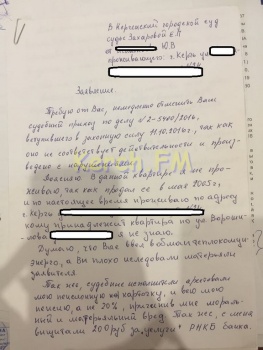 В Керченский городской суд
судье Захаровой Е.А
от Ю.В
проживающего: г. Керчь ул.
Заявление.
Требую от Вас, немедленно отменить Ваш
судебный приказ по делу №2-5400/2016,
вступившего в законную силу 11.10.2016г, так как
оно не соответствует действительности и произ-
ведено с нарушениями.
Поясняю В данной квартире я не про-
живаю так как продал её в мае 2005г,
и по настоящее время проживаю по адресу
г. Керчь
кому принадлежит квартира по ул Вороши-
лова я не знаю.
Думаю, что Вас ввел в обман теплокоммун-
энерго, а Вы плохо исследовали материалы
заявителя.
Так же, судебные исполнители арестовали
мою пенсионную карточку, и всю мою
пенсию, а не 20%, причинив мне мораль-
ный и материальный вред. Так же, с меня
высчитали 200 руб за услуги РНКБ банка.
KERCH FM